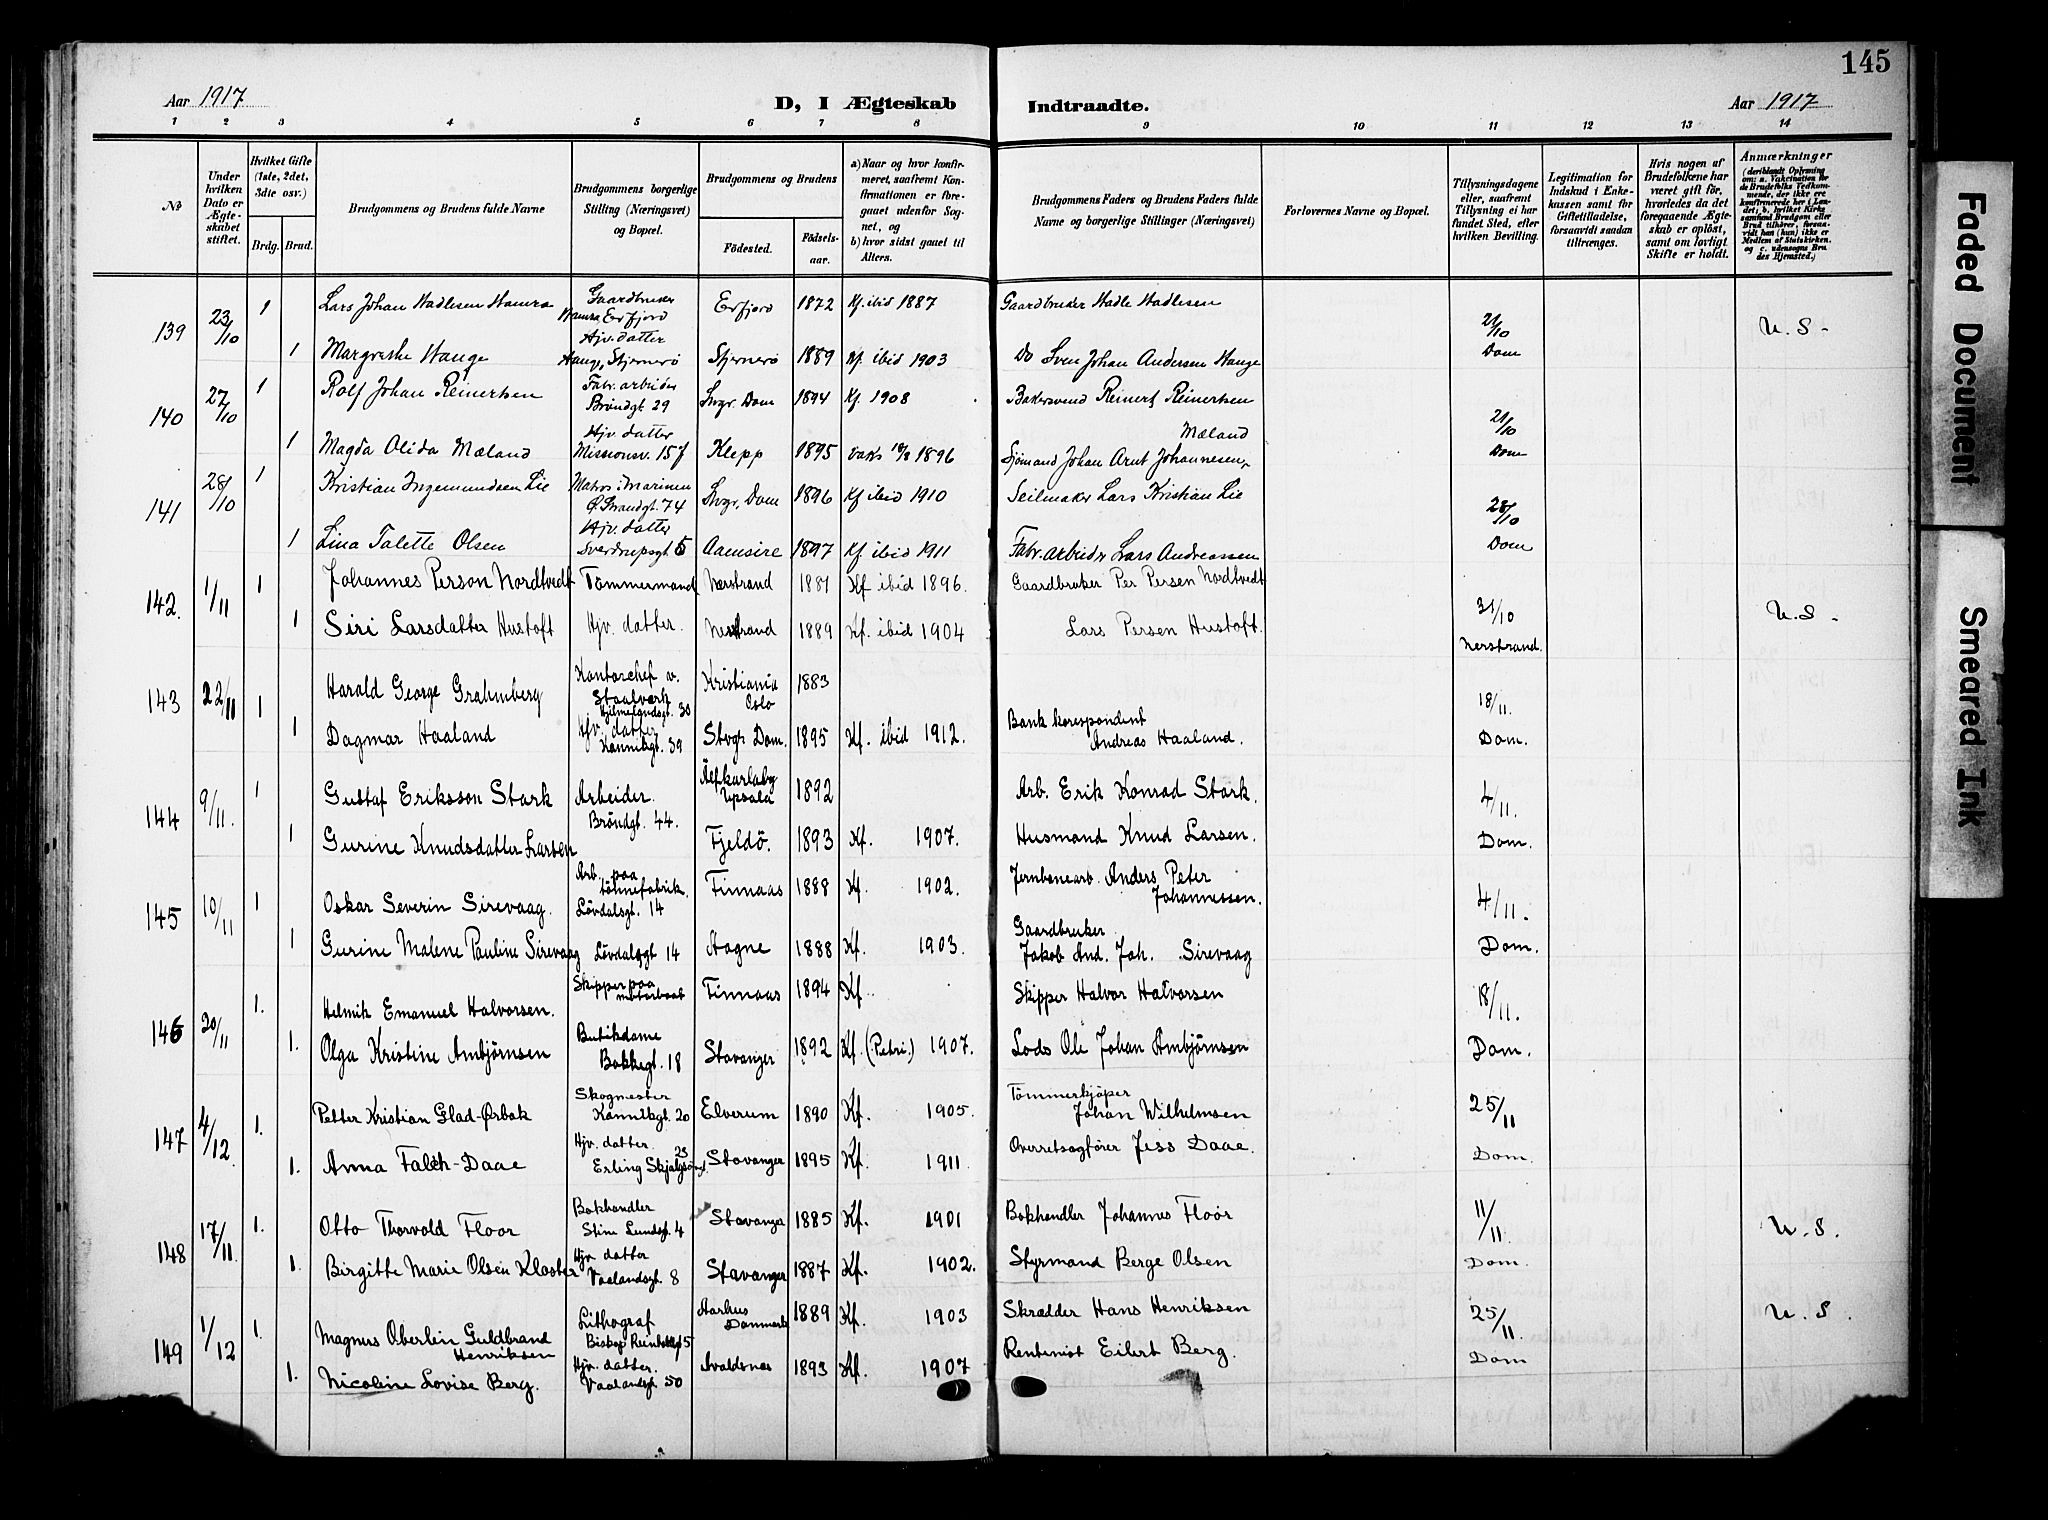 145
Aar 1917
D, I Ægteskab Indtraadte.
Aar 1917
1 2 3 4 5 6 7 8 9 10 11 12 13 14
№
Under hvilken Dato er Ægteskabet stiftet.
Hvilket Gifte (1ste, 2det, 3die osv.)
Brdg. Brud.
Brudgommens og Brudens fulde Navne
Brudgommens borgerlige Stilling (Næringsvei) og Bopæl.
Brudgommens og Brudens
Fødested.
Fødselsaar.
a) Naar og hvor konfirmeret, saafremt Konfirmationen er foregaaet udenfor Sognet, og
b) hvor sidst gaaet til Alters.
Brudgommens Faders og Brudens Faders fulde Navne og borgerlige Stillinger (Næringsvei)
Forlovernes Navne og Bopæl.
Tillysningsdagene eller, saafremt Tillysning ei har fundet Sted, efter hvilken Bevilling.
Legitimation for Indskud i Enkekassen samt for Giftetilladelse, forsaavidt saadan tiltrænges.
Hvis nogen af Brudefolkene har været gift før, hvorledes da det foregaaende Ægteskab er opløst, samt om lovligt Skifte er holdt.
Anmærkninger (deriblandt Oplysning om: a. Vakcination for de Brudefolks Vedkommende, der ikke ere konfirmerede her i Landet; b. hvilket Kirkesamfund Brudgom eller Brud tilhører, forsaavidt han (hun) ikke er Medlem af Statskirken. og c. udensogns Brudes Hjemsted.)
139 23/10 1 Lars Johan Hadlesen Hamra Gaardbruker Hamra Erfjord Erfjord 1872 Kf. ibid 1887 Gaardbruker Hadle Hadlesen 21/10 Dom U. S.
1 Margrethe Hauge Hjv. datter Hauge, Stjernerö Stjernerö 1889 Kf. ibid 1903 Do Sven Johan Andersen Hauge
140 27/10 1 Rolf Johan Reinertsen Fabr. arbeider Brøndgt. 29 Svgr. Dom 1894 Kf. 1908 Bakersvend Reinert Reinertsen 21/10 Dom
1 Magda Olida Mæland Hjv. datter Missionsv. 15 Klepp 1895 vaks 1896 Sjømand Johan Arnt Johannesen Mæland
141 28/10 1 Kristian Ingemundsen Lie Matros i Marinen Ø. Strandgt. 74 Svgr. Dom 1896 Kf ibid 1910 Seilmaker Lars Kristian Lie 28/10 Dom
1 Lina Talette Olsen Hjv. datter Sverdrupsgt 5 Aamsire 1897 Kf ibid 1911 Fabr. arbeider Lars Andreassen
142. 1/11 1 Johannes Person Nordtvedt Tömmermand Nerstrand 1881 Kf ibid 1896. Gaardbruker Per Persen Nordtvedt 31/10 Nerstrand. U. S.
1 Siri Larsdatter Hustoft Hjv. datter. Nerstrand 1889 Kf. ibid 1904 Lars Persen Hustoft.
143 22/11 1 Harald George Grahmberg Kontorchef v. Staalverk Hjelmelandsgt. 30 Kristiania Oslo 1883 18/11. Dom.
1 Dagmar Haaland Hjv. datter Kannikgt. 39 Stvgr. Dom. 1895 Kf. ibid 1912. Bank korespondent Andreas Haaland.
144 9/11. 1 Gustaf Eriksson Stark Arbeider. Brøndgt. 44. Älfkarleby Upsala 1892 Arb. Erik Konrad Stark. 4/11. Dom.
1 Gurine Knudsdatter Larsen Fjeldö. 1893 Kf. 1907. Husmand Knud Larsen.
145 10/11 1 Oskar Severin Sirevaag. Arb. paa tönnefabrik. Lövdalsgt. 14 Finnaas 1888 Kf. 1902. Jernbanearb. Anders Peter Johannessen. 4/11. Dom.
1 Gurine Malene Pauline Sirevaag Lövdalsgt 14 Hogne 1888 Kf. 1903. Gaardbruker Jakob And. Joh. Sirevaag
146 20/11 1. Helmik Emanuel Halvorsen. Skipper paa motorbaat Finnaas 1894 Kf. Skipper Halvor Halvorsen 18/11. Dom.
1. Olga Kristine Ambjørnsen Butikdame Bakkegt. 18 Stavanger 1892 Kf. (Petri.) 1907. Lods Ole Johan Ambjørnsen
147 4/12. 1. Petter Kristian Glad-Ørbak Skogmester Kannikgt. 20 Elverum 1890 Kf. 1905. Tömmerkjøper Johan Wilhelmsen 25/11 Dom.
1. Anna Falch-Daae Hjv. datter. Erling Skjalgsöngt. 23 Stavanger 1895 Kf. 1911. Overretssagfører Jess Daae.
148 17/11. 1. Otto Thorvald Floor Bokhandler Stine Lundsgt. 4 Stavanger 1885 Kf. 1901 Bokhandler Johannes Floor 11/11. Dom. U. S.
1. Birgitte Marie Olsen Kloster Hjv. datter Vaalandsgt. 8 Stavanger 1887 Kf. 1902. Styrmand Berge Olsen
149 1/12 1. Magnus Oberlein Guldbrand Henriksen Lithograf Biskop Reinholdsgt 5 Aarhus Danmark 1889 Kf. 1903 Skrædder Hans Henriksen 25/11. Dom U. S.
1. Nicoline Lovise Berg. Hjv. datter. Vaalandsgt. 50 Avaldsnes 1893 Kf. 1907 Rentenist Eilert Berg.
Faded Document
Smeared Ink